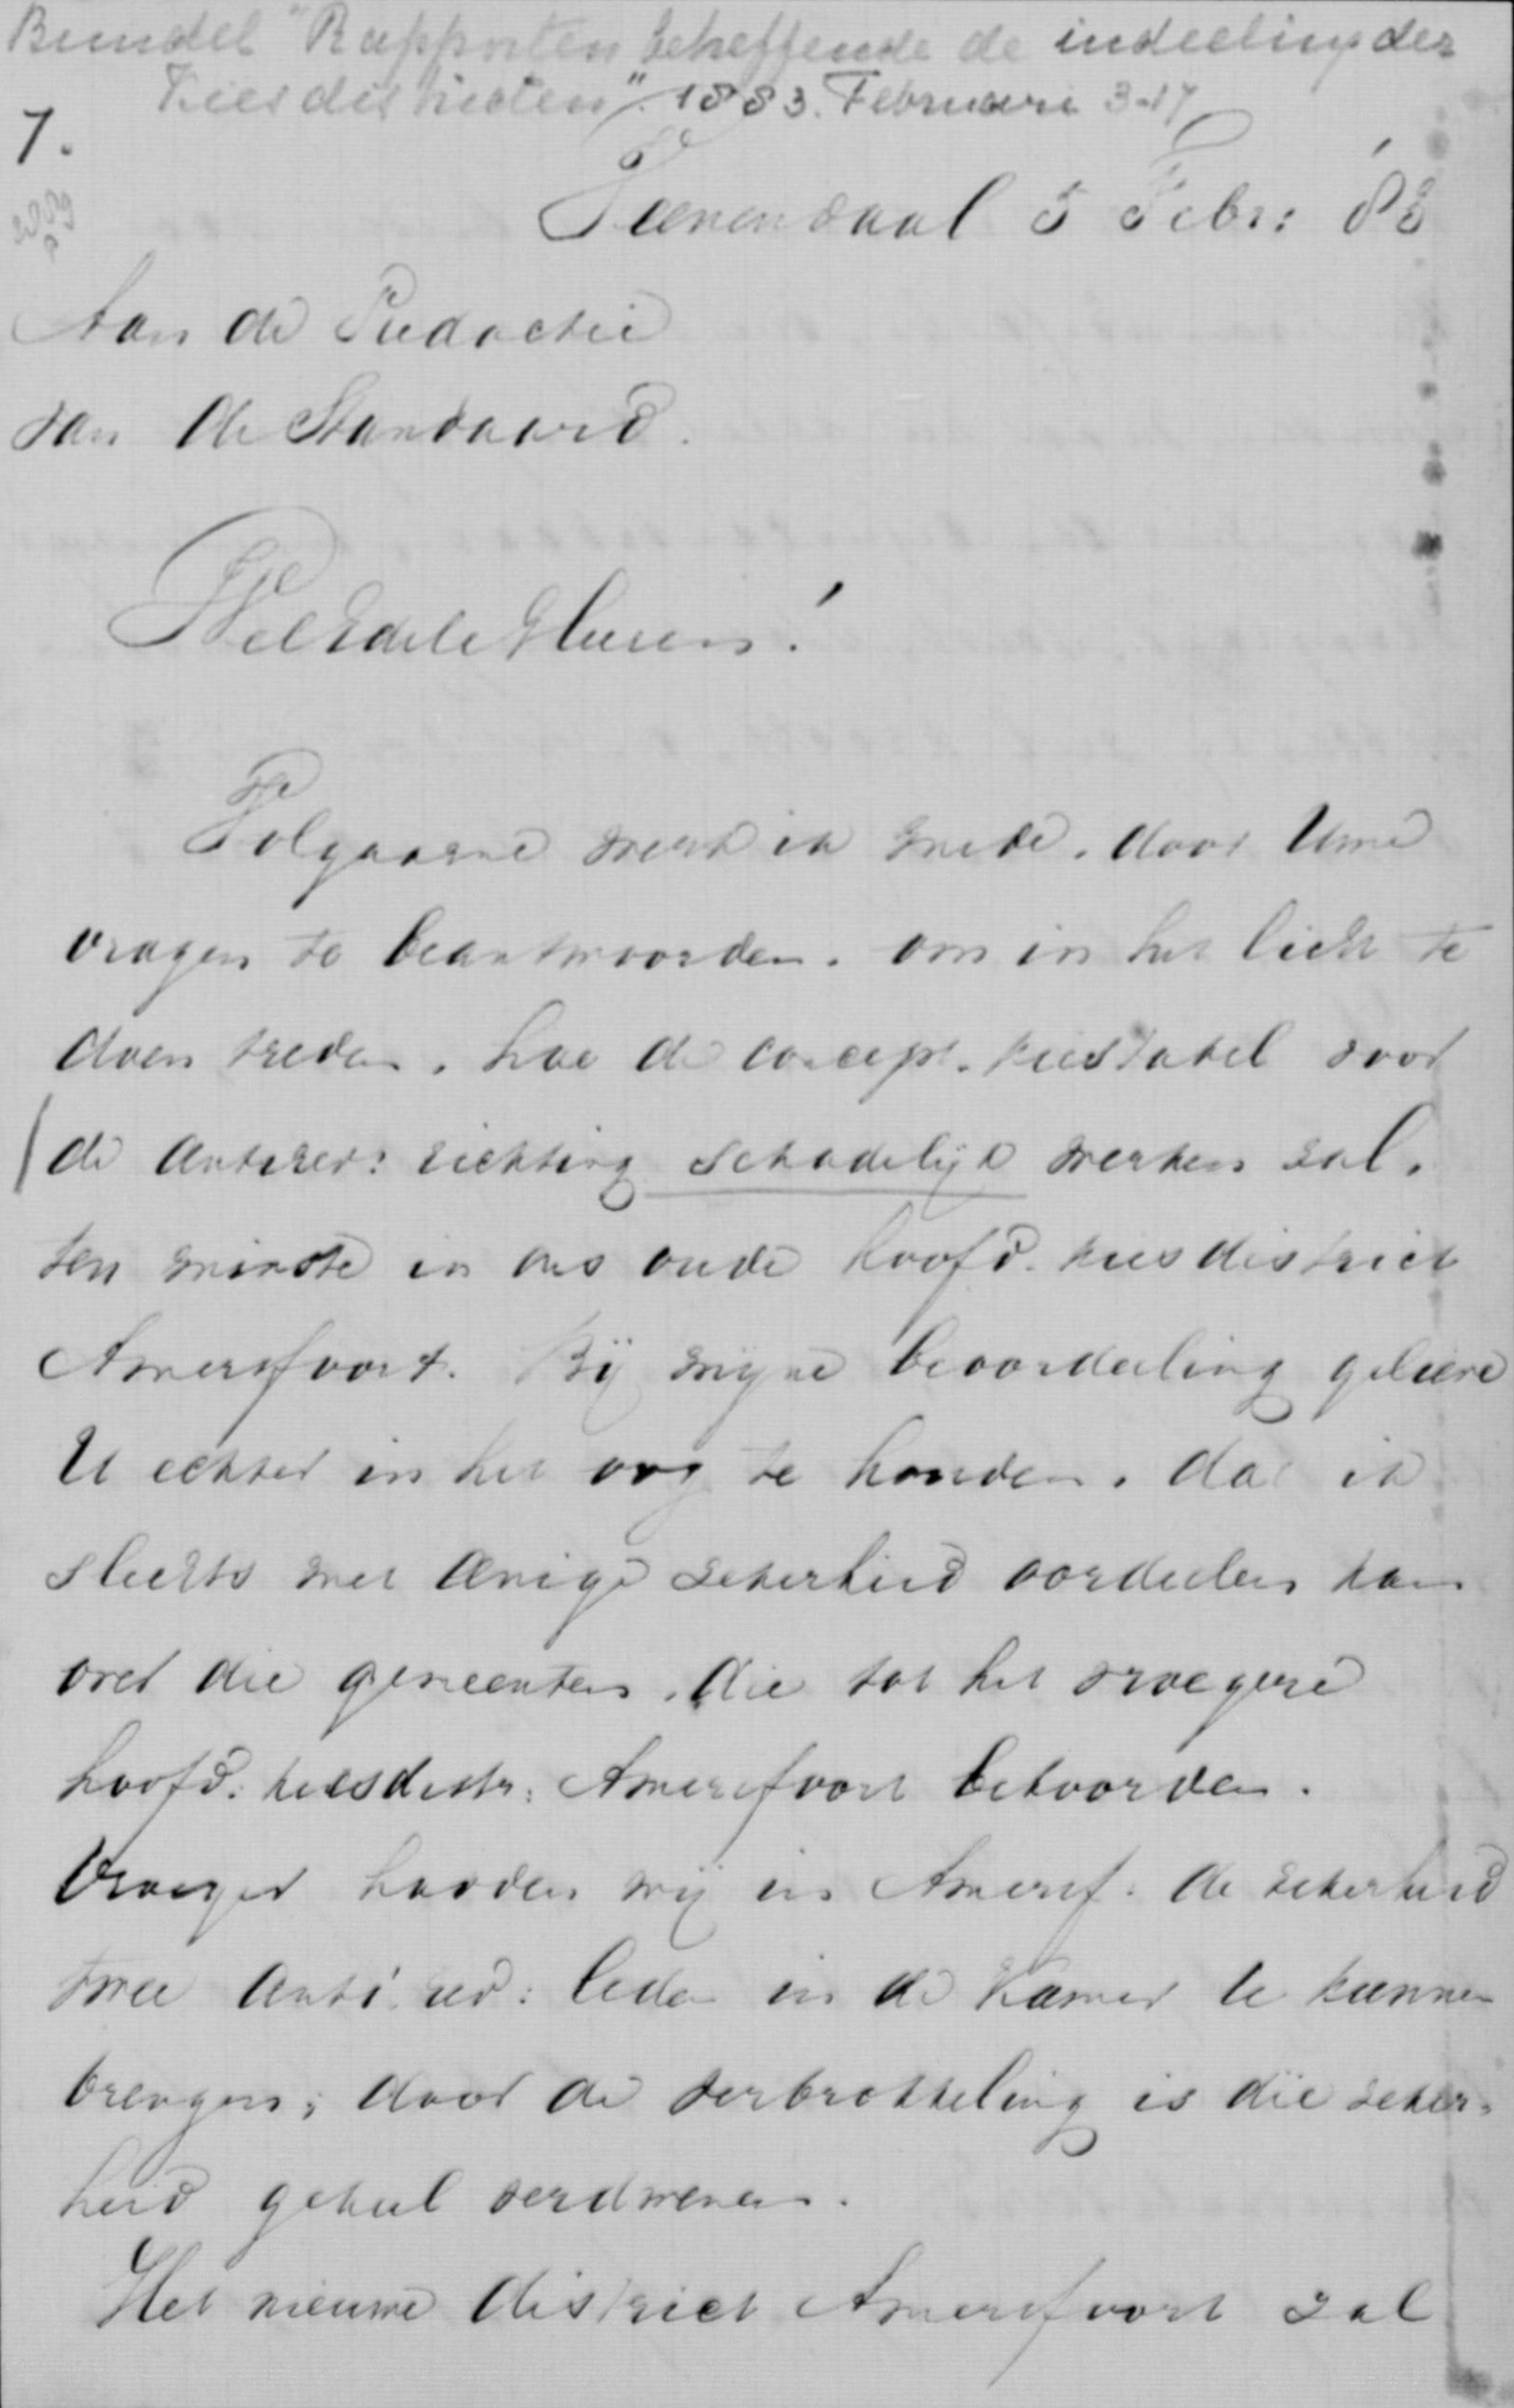 Bundel "Rapporten betreffende de indeeling der
Kiesdistricten". 1883. Februari 3-17
7.
Veenendaal 5 Febr: 83
Aan de Redactie
van de Standaard.
WelEdele Heeren!
Volgaarne werk ik mede, door Uwe
vragen te beantwoorden, om in het licht te
doen treden, hoe de concept-kiestabel voor
de antirev: richting schadelijk werken zal,
ten minste in ons oude hoofd-kiesdistrict
Amersfoort. Bij mijne beoordeeling gelieve
U echter in het oog te houden, dat ik
slechts met eenige zekerheid oordeelen kan
over die gemeenten, die tot het vroegere
hoofd: kiesdistr: Amersfoort behoorden.
Vroeger hadden wij in Amersf: de zekerheid
twee anti-rev: leden in de Kamer te kunnen
brengen; door de verbrokkeling is die zeker-
heid geheel verdwenen.
Het nieuwe district Amersfoort zal